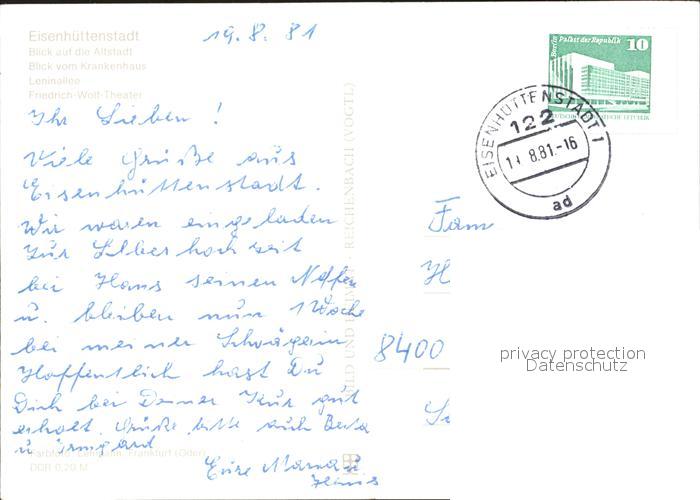 Eisenhüttenstadt
Blick auf die Altstadt
Blick vom Krankenhaus
Leninallee
Friedrich-Wolf-Theater
19. 8. 81
Berlin Palast der Republik 10
EISENHÜTTENSTADT 1
122
8.81.-16
ad
Ihr Lieben !
Viele Grüße aus
Eisenhüttenstadt.
Wir waren eingeladen
zur Silberhochzeit
bei Hans seinen Neffen
u. bleiben nun 1 Woche
bei meiner Schwägerin
Hoffentlich hast Du
Dich bei Deiner Kur gut
erholt. Grüße bitte auch
u Irmgard
Eure Mama u
Hans
Fam
H
8400
BILD UND HEIMAT · REICHENBACH (VOGTL)
Farbfoto: Lehmann, Frankfurt (Oder)
DDR 0,20 M
privacy protection
Datenschutz